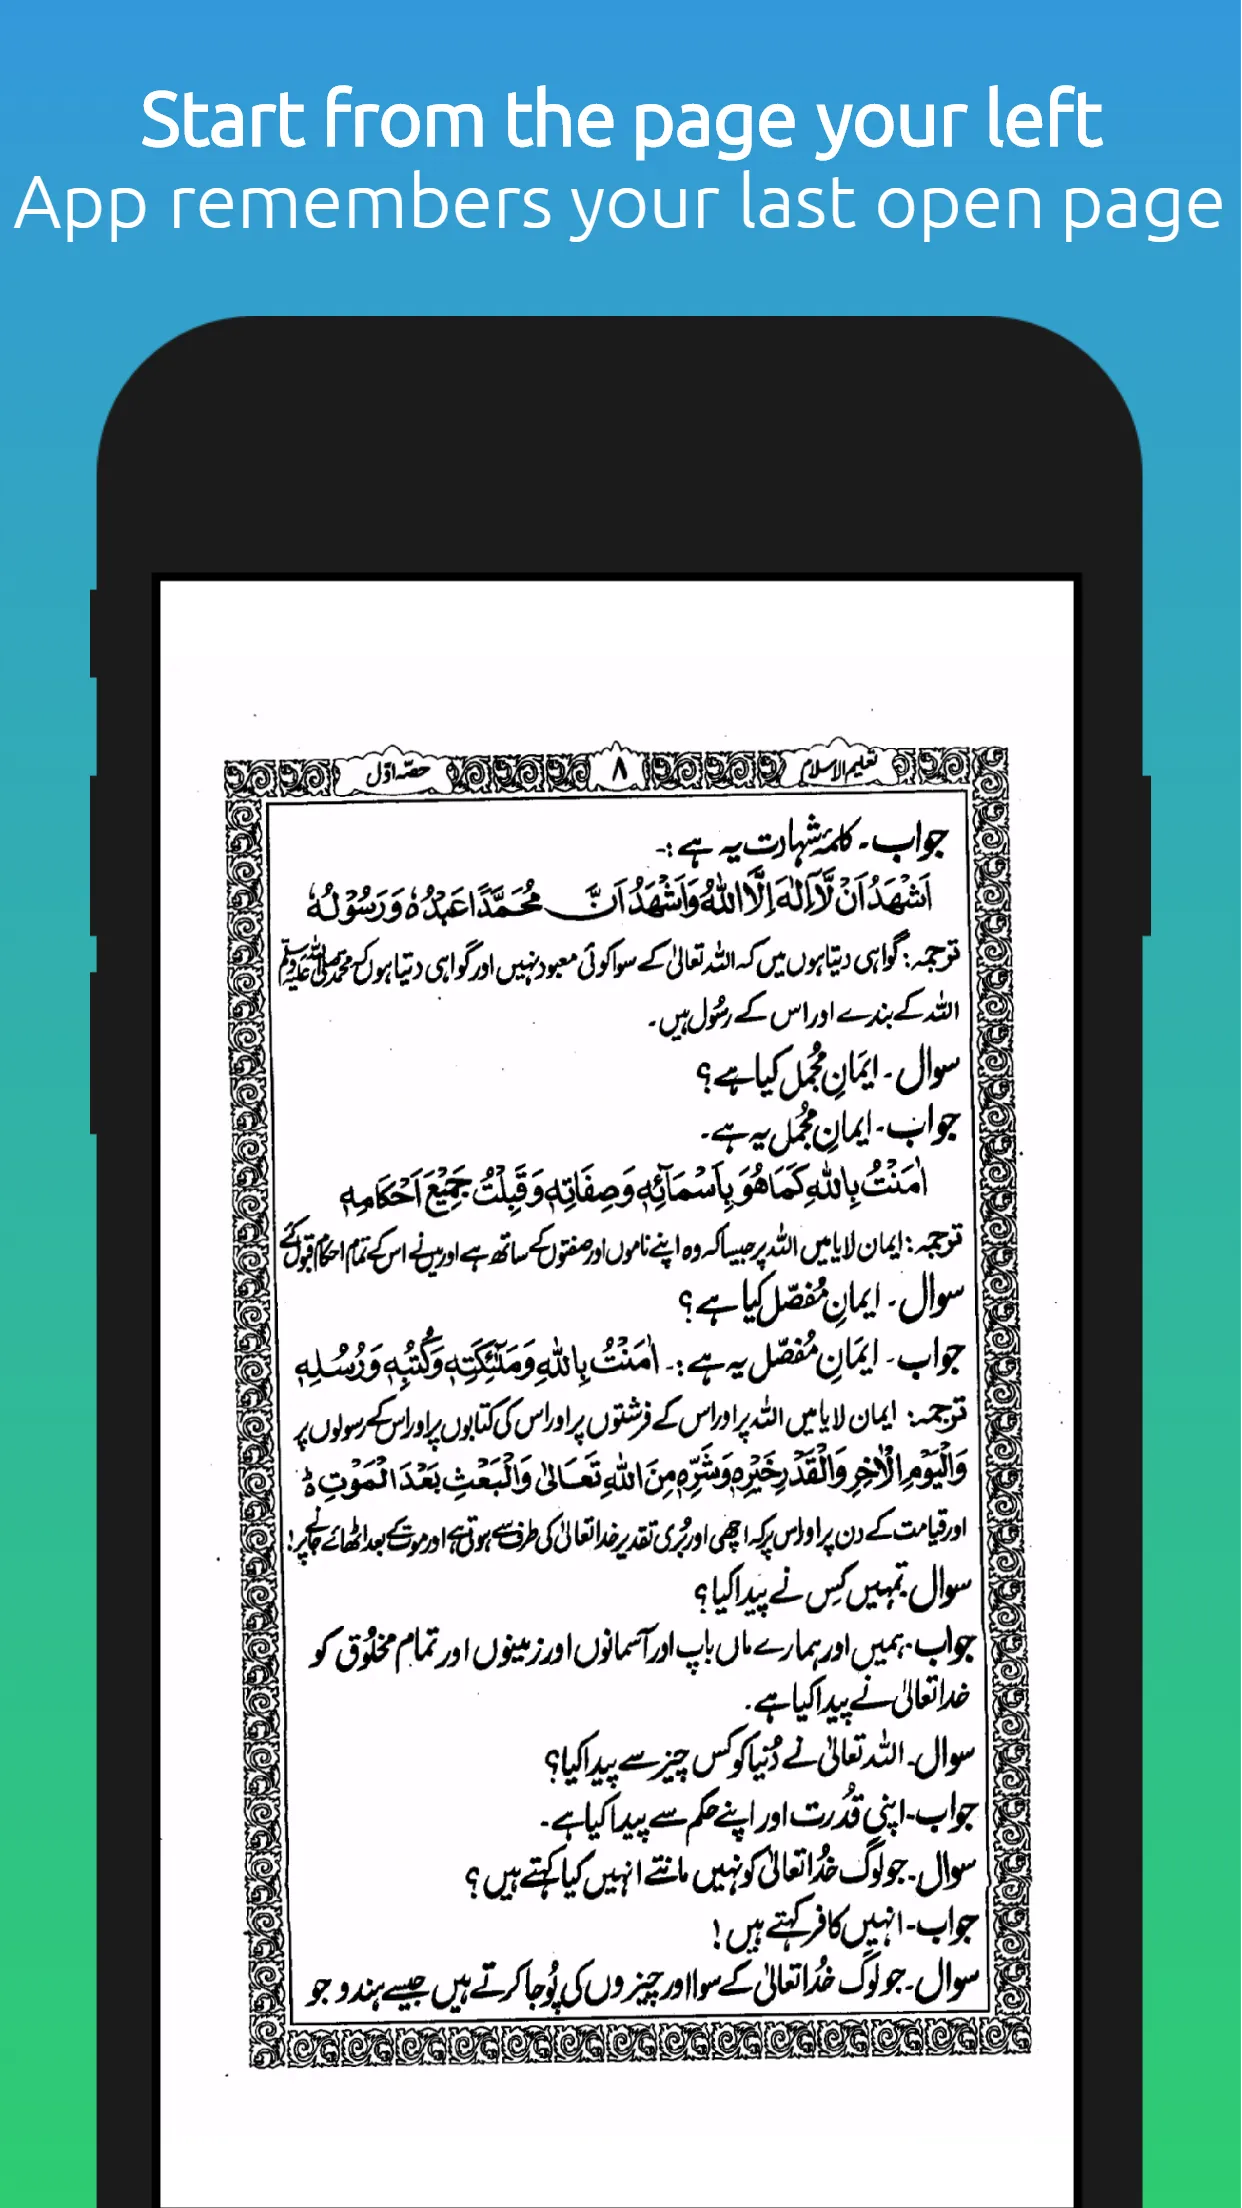 Start from the page your left
App remembers your last open page
تعلیم الاسلام ۸ حصّہ اوّل
جواب۔ کلمۂ شہادت یہ ہے :۔
اَشْهَدُ اَنْ لَّآ اِلٰهَ اِلَّا اللّٰهُ وَاَشْهَدُ اَنَّ مُحَمَّدًا عَبْدُهٗ وَرَسُوْلُهٗ
ترجمہ: گواہی دیتا ہوں میں کہ اللہ تعالیٰ کے سوا کوئی معبود نہیں اور گواہی دیتا ہوں کہ محمد صلی اللہ علیہ وسلم
اللہ کے بندے اور اس کے رسُول ہیں۔
سوال۔ ایمَانِ مُجمل کیا ہے؟
جواب۔ ایمانِ مُجمل یہ ہے۔
اٰمَنْتُ بِاللّٰهِ كَمَا هُوَ بِاَسْمَآئِهٖ وَصِفَاتِهٖ وَقَبِلْتُ جَمِيْعَ اَحْكَامِهٖ
ترجمہ: ایمان لایا میں اللہ پر جیسا کہ وہ اپنے ناموں اور صفتوں کے ساتھ ہے اور میں نے اس کے تمام احکام قبول کئے
سوال۔ ایمانِ مُفصّل کیا ہے؟
جواب۔ ایمَانِ مُفصّل یہ ہے :۔ اٰمَنْتُ بِاللّٰهِ وَمَلٰٓئِكَتِهٖ وَكُتُبِهٖ وَرُسُلِهٖ
ترجمہ: ایمان لایا میں اللہ پر اور اس کے فرشتوں پر اور اس کی کتابوں پر اور اس کے رسولوں پر
وَالْيَوْمِ الْاٰخِرِ وَالْقَدْرِ خَيْرِهٖ وَشَرِّهٖ مِنَ اللّٰهِ تَعَالٰى وَالْبَعْثِ بَعْدَ الْمَوْتِ ط
اور قیامت کے دن پر اور اس پر کہ اچھی اور بُری تقدیر خدا تعالیٰ کی طرف سے ہوتی ہے اور موت کے بعد اٹھائے جانے پر!
سوال۔ تمہیں کِس نے پیدا کیا؟
جواب۔ ہمیں اور ہمارے ماں باپ اور آسمانوں اور زمینوں اور تمام مخلُوق کو
خدا تعالیٰ نے پیدا کیا ہے۔
سوال۔ اللہ تعالیٰ نے دُنیا کو کس چیز سے پیدا کیا؟
جواب۔ اپنی قُدرت اور اپنے حکم سے پیدا کیا ہے۔
سوال۔ جو لوگ خُدا تعالیٰ کو نہیں مانتے انہیں کیا کہتے ہیں؟
جواب۔ انہیں کافر کہتے ہیں!
سوال۔ جو لوگ خُدا تعالیٰ کے سوا اور چیزوں کی پُوجا کرتے ہیں جیسے ہندو جو